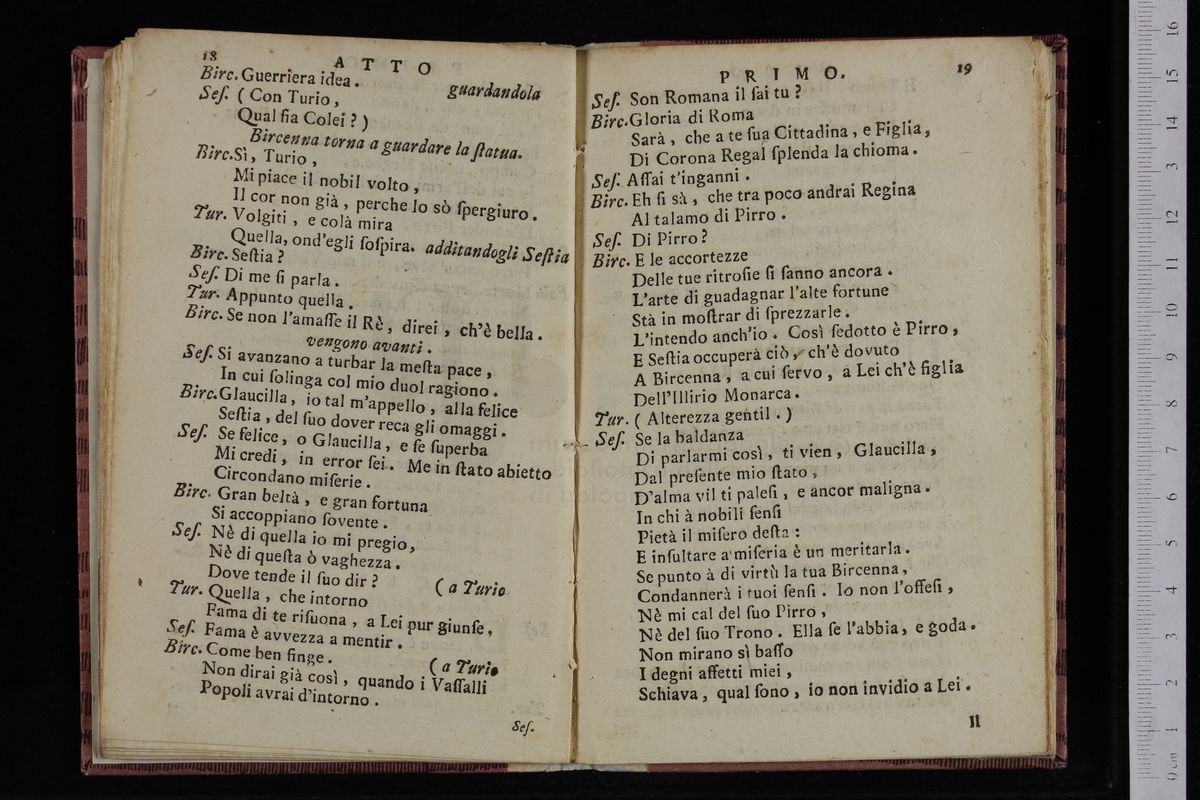 18
ATTO
Birc. Guerriera idea. guardandola
Seſ. (Con Turio,
Qual ſia Colei?)
Bircenna torna a guardare la ſtatua.
Birc. Sì, Turio,
Mi piace il nobil volto,
Il cor non già, perche lo sò ſpergiuro.
Tur. Volgiti, e colà mira
Quella, ond'egli ſoſpira. additandogli Seſtia
Birc. Seſtia?
Seſ. Di me ſi parla.
Tur. Appunto quella.
Birc. Se non l'amaſſe il Rè, direi, ch'è bella.
vengono avanti.
Seſ. Si avanzano a turbar la meſta pace,
In cui ſolinga col mio duol ragiono.
Birc. Glaucilla, io tal m'appello, alla felice
Seſtia, del ſuo dover reca gli omaggi.
Seſ. Se felice, o Glaucilla, e ſe ſuperba
Mi credi, in error ſei. Me in ſtato abietto
Circondano miſerie.
Birc. Gran beltà, e gran fortuna
Si accoppiano ſovente.
Seſ. Nè di quella io mi pregio,
Nè di queſta ò vaghezza.
Dove tende il ſuo dir? (a Turio
Tur. Quella, che intorno
Fama di te riſuona, a Lei pur giunſe,
Seſ. Fama è avvezza a mentir.
Birc. Come ben finge. (a Turio
Non dirai già così, quando i Vaſſalli
Popoli avrai d'intorno.
Seſ.
PRIMO. 19
Seſ. Son Romana il ſai tu?
Birc. Gloria di Roma
Sarà, che a te ſua Cittadina, e Figlia,
Di Corona Regal ſplenda la chioma.
Seſ. Aſſai t'inganni.
Birc. Eh ſi sà, che tra poco andrai Regina
Al talamo di Pirro.
Seſ. Di Pirro?
Birc. E le accortezze
Delle tue ritroſie ſi ſanno ancora.
L'arte di guadagnar l'alte fortune
Stà in moſtrar di ſprezzarle.
L'intendo anch'io. Così ſedotto è Pirro,
E Seſtia occuperà ciò, ch'è dovuto
A Bircenna, a cui ſervo, a Lei ch'è figlia
Dell'Illirio Monarca.
Tur. (Alterezza gentil.)
Seſ. Se la baldanza
Di parlarmi così, ti vien, Glaucilla,
Dal preſente mio ſtato,
D'alma vil ti paleſi, e ancor maligna.
In chi à nobili ſenſi
Pietà il miſero deſta:
E inſultare a miſeria è un meritarla.
Se punto à di virtù la tua Bircenna,
Condannerà i tuoi ſenſi. Io non l'offeſi,
Nè mi cal del ſuo Pirro,
Nè del ſuo Trono. Ella ſe l'abbia, e goda.
Non mirano sì baſſo
I degni affetti miei,
Schiava, qual ſono, io non invidio a Lei.
Il
0 cm 1 2 3 4 5 6 7 8 9 10 11 12 13 14 15 16